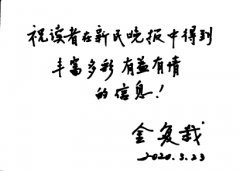 祝读者在新民晚报中得到
丰富多彩 有益有情
的信息！
金复载
2020.3.23